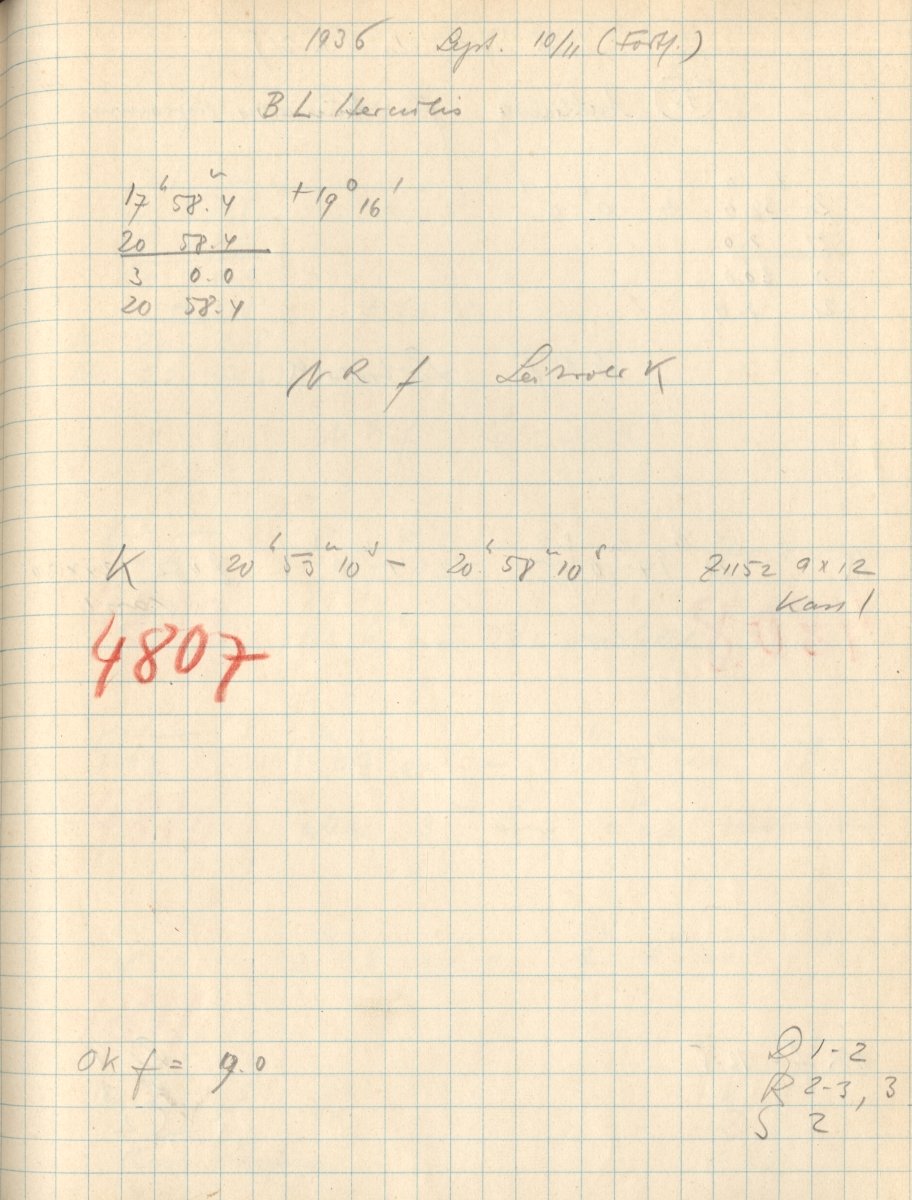 1936 Sept. 10/11 (Forts.)
BL Herculis
17ʰ 58.4ᵐ +19° 16'
20 58.4
3 0.0
20 58.4
NR f K
K 20ʰ 53ᵐ 10ˢ – 20ʰ 58ᵐ 10ˢ Z1152 9x12
Kass 1
4807
Ok f = 9.0
D 1-2
R 2-3, 3
S 2